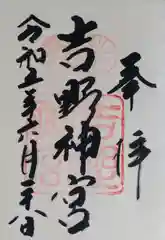 奉拝
吉野神宮
令和五年六月二十八日